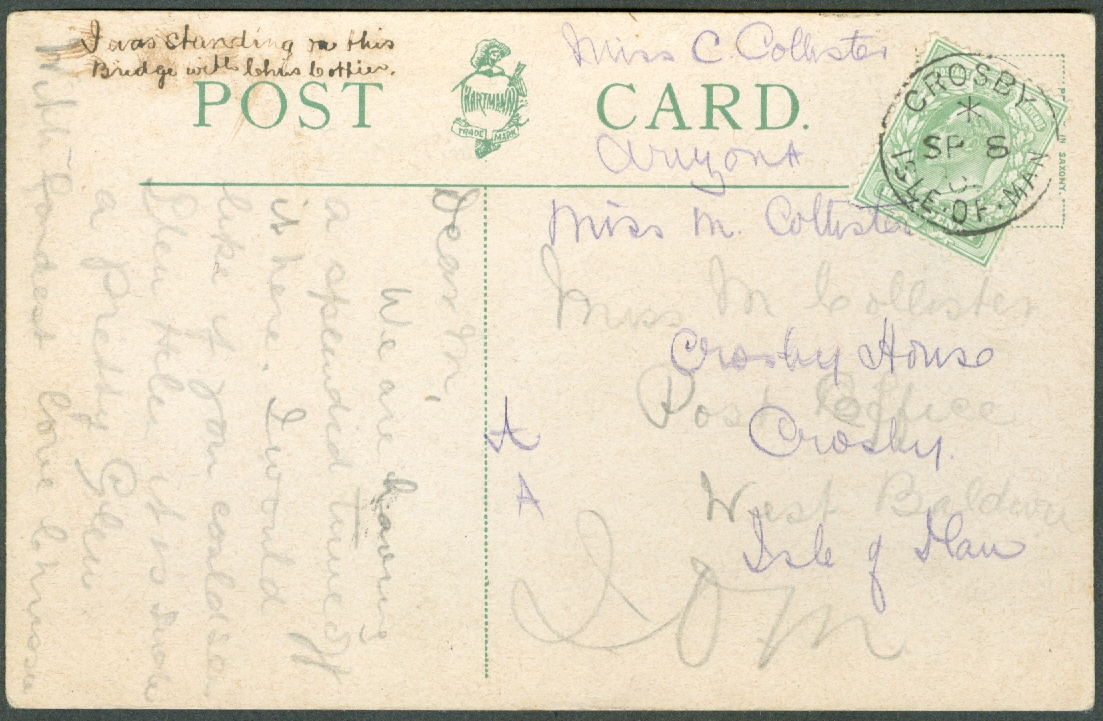 I was standing on this
Bridge with Chris Cottier.
POST CARD.
HARTMANN
TRADE MARK
Miss C. Collister
Miss M. Collister
Crosby House
Crosby.
Isle of Man
A
A
Miss M Collister
Post Office
West Baldwin
I O M
CROSBY
SP 8
ISLE·OF·MAN
IN SAXONY.
Dear M,
We are having
a splendid time of
it here. I would
like if you could see
Glen Helen it is such
a pretty Glen
With fondest love